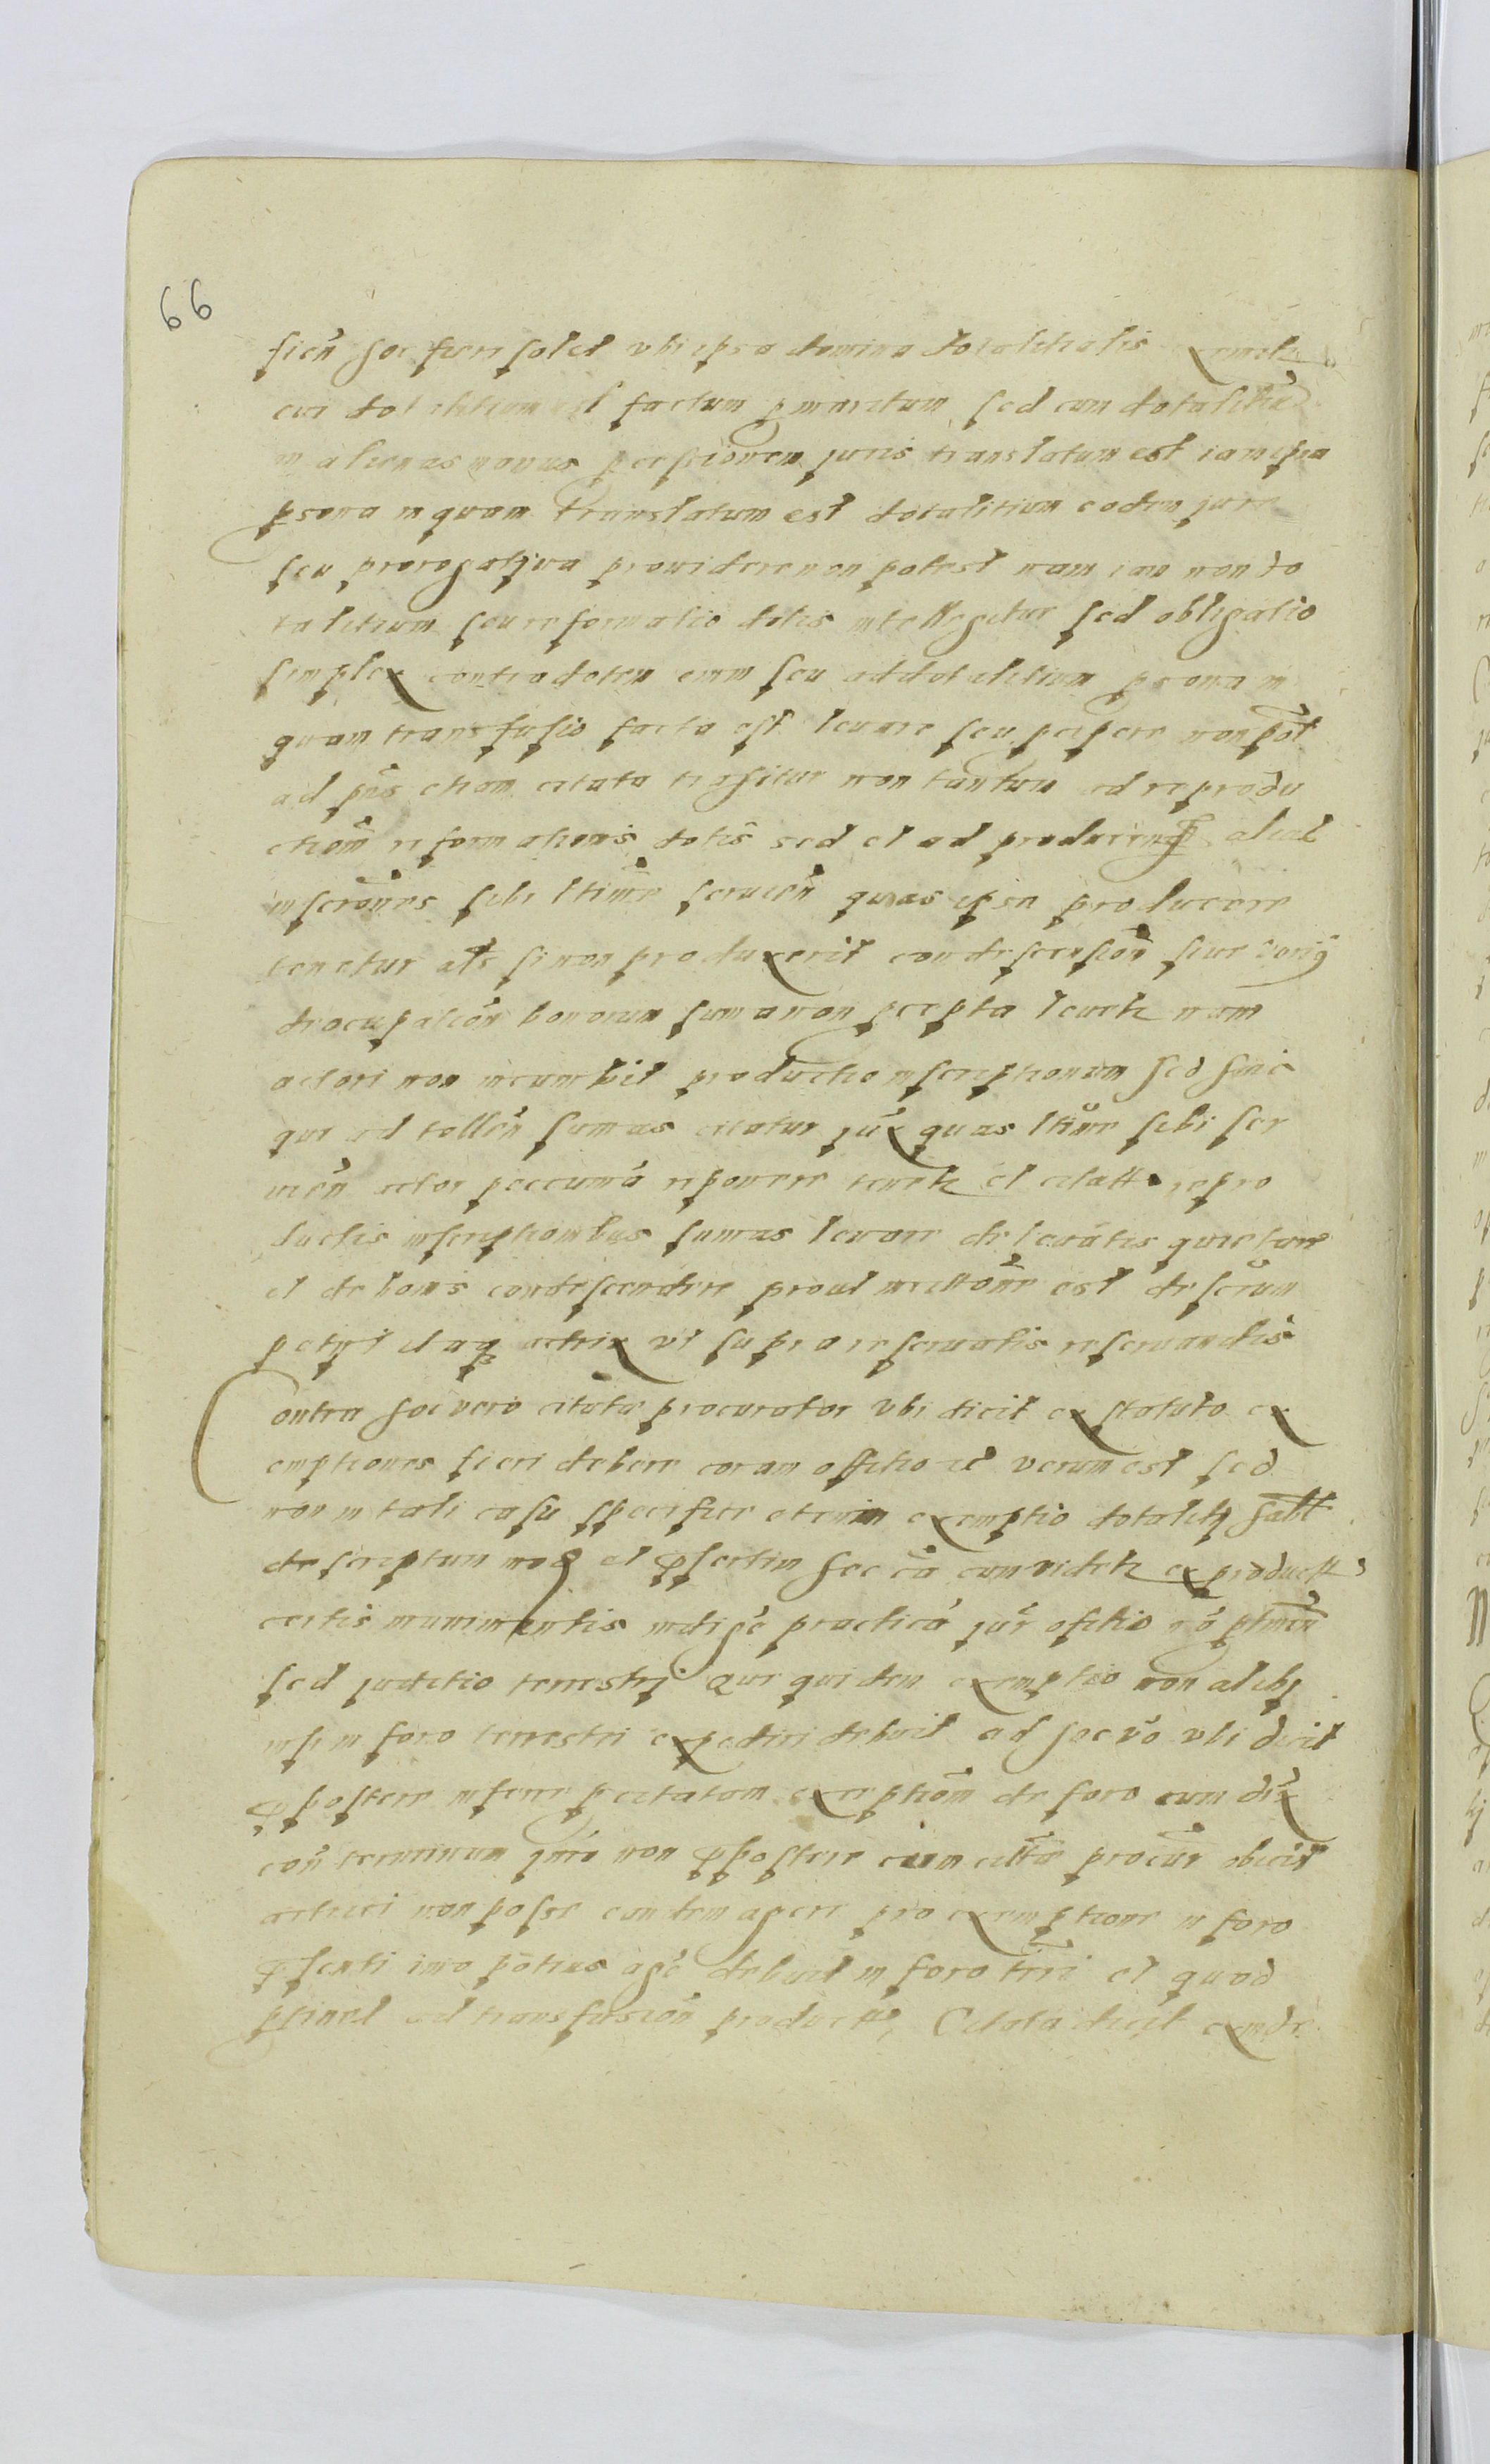 66
ficen hoc fieri solet vbi ipsa domina dotalitialis
cui dotalitium est factum p maritum sed cum dotalitiu
in alienas manus p cessionem juris translatum est iam ipsa
psona in quam translatum est dotalitium eodem jure
seu prerogatiua prouidere non potest nam iam non do
talitium seu reformatio dotis intellegitur sed obligatio
simplex contradotem enim seu addotalitium psona in
quam transfusio facta est leuare seu pcipere non pot
ad pns etiam citata trahitur non tantum ad reprodu
ctiom reformationis dotis sed et ad producend alias
inscrones sibi ltime seruien quas ipsa producere
tenetur als si non produxerit condescension siue
de ocupation bonorum suma non pcepta leuetr nam
actori non incumbit productio inscriptionum sed huic
qui ad tollen sumas citatur jux quas ltime sibi ser
uien actor peccuniā reponere tenetr et citatt repro
ductis inscriptionibus sumas leuare de leuātis quietare
et de bonis condescendere prout est descrum
petijt itaq actrix vt supra reseruatis reseruandis
Contra hoc vero citata procurator vbi dicit ex statuto ex
emptiones fieri debere coram offitio verum est sed
non in tali casu specifice etenim exemptio dotalitij habt
descriptum modū et psertim hec cā cum videtr ex product
certis munimentis indige practicā jur ofitio nō ptinen
sed juditio terrestrj Que quidem exemptio non alibj
nisi in foro terrestri expediri debuit ad hoc vō vbi dicit
ppostere inferre p citatam exceptiom de foro cum
con terminum jmo non ppostere cum citta procur obicit
actrici non posse eandem agere pro exemptione in foro
psenti imo potius age debuit in foro trri et quod
ptinet ad transfusion product Citata dicit